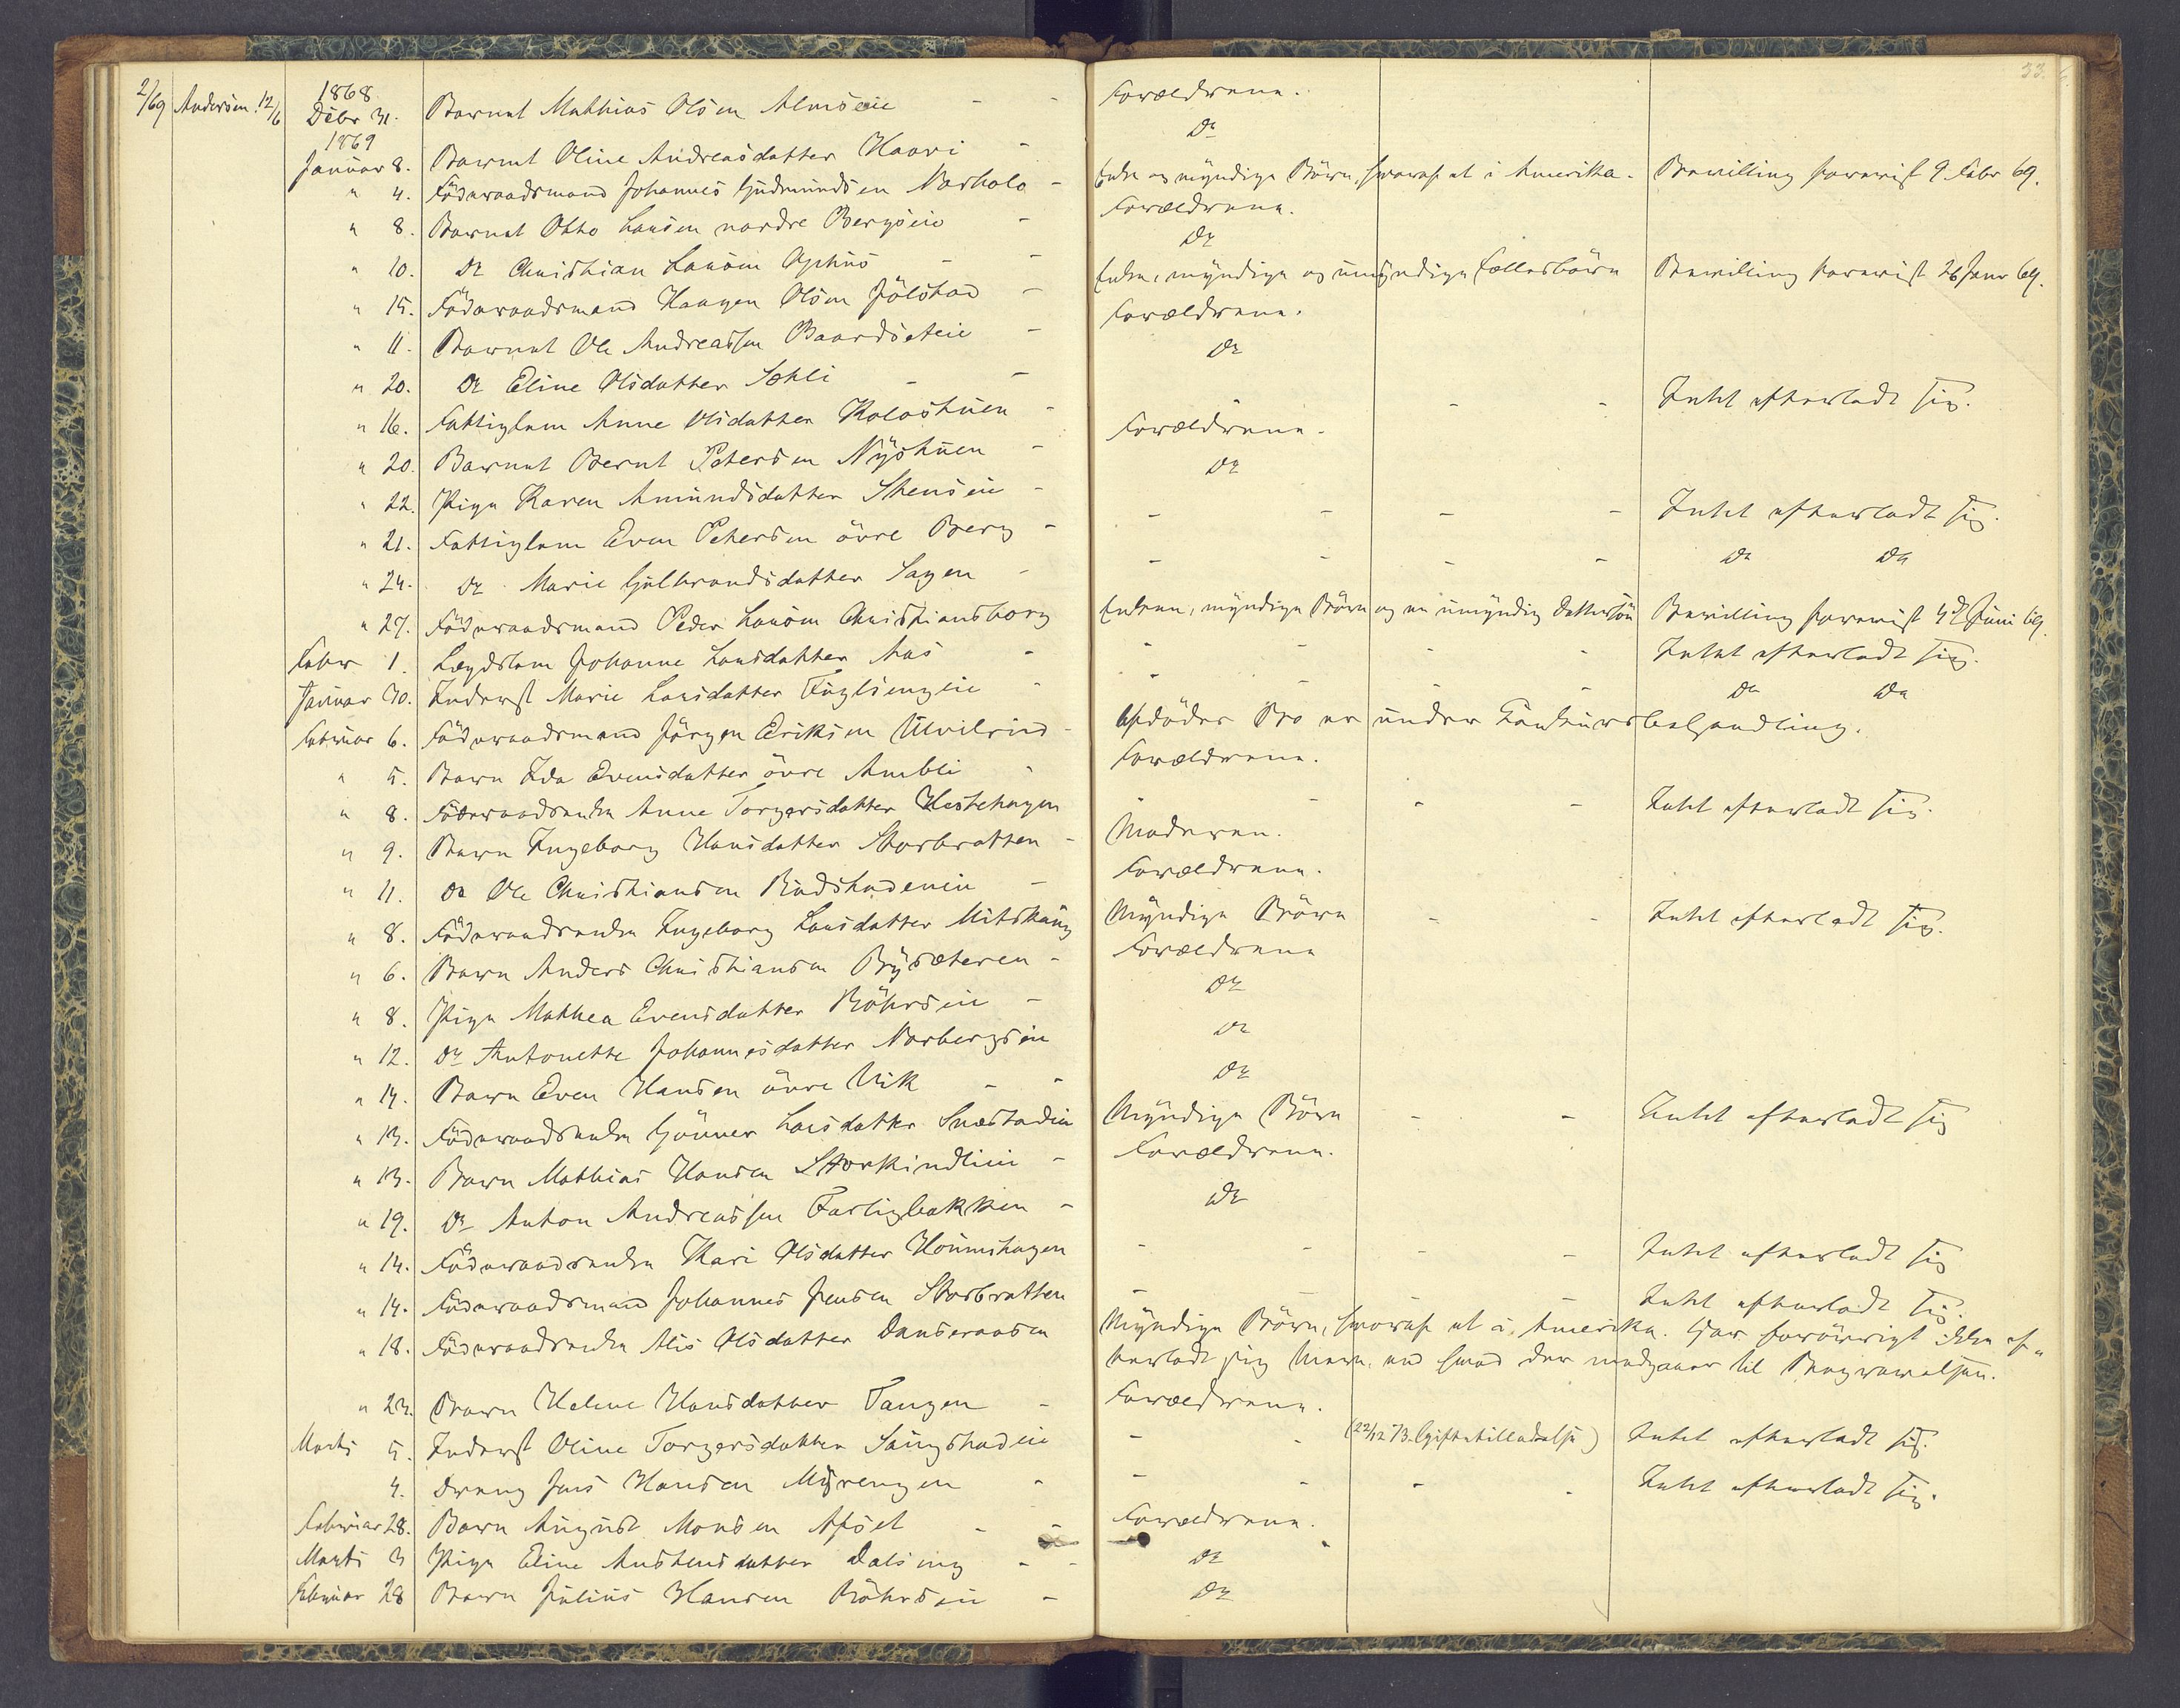 33.
2/69 Andersen 12/6 1868 Debr 31. Barnet Mathias Olsen Almseie - - Forældrene.
1869
Januar 8. Barnet Oline Andreasdatter Haavi - Do
" 4. Föderaadsmand Johannes Gudmundsen - Enke og myndige Börn, hvoraf et i Amerika. Bevilling forevist 9 Febr 69.
" 8. Barnet Otto Larsen nordre Bergseie - Forældrene.
" 10. Do Christian Larsen Ophus - - Do
" 15. Föderaadsmand Haagen Olsen Jölstad - Enke, myndige og umyndige Fællesbörn Bevilling forevist 26 Janr 69.
" 11. Barnet Ole Andreassen Baardseteie - Forældrene.
" 20. Do Eline Olsdatter Sæhli - - Do
" 16. Fattiglem Anne Olsdatter Kolostuen - - - - Intet efterladt sig.
" 20. Barnet Bernt Petersen Nystuen - Forældrene.
" 22. Pige Karen Amundsdatter Stenseie - Do
" 21. Fattiglem Even Petersen övre Berg - - - - - Intet efterladt sig.
" 24. Do Marie Gulbrandsdatter Sagen - - - - - Do Do
" 27. Föderaadsmand Peder Larsen Christiansborg Enken, myndige Börn og en umyndig Dattersön Bevilling forevist 4de Juni 69.
Febr 1. Lægdslem Johanne Larsdatter Aas - - - - - Intet efterladt sig.
Januar 30. Inderst Marie Larsdatter Fuglsengeie - - - - - Do Do
Februar 6. Föderaadsmand Jörgen Eriksen Ulvilrud - Afdödes Bo er under Konkursbehandling.
" 5. Barn Ida Evensdatter övre Ambli - Forældrene.
" 8. Föderaadsenke Anne Torgersdatter Hestehagen - - - - Intet efterladt sig.
" 9. Barn Ingeborg Hansdatter Storbratten - Moderen.
" 11. Do Ole Christiansen Rudstadeneie - Forældrene.
" 8. Föderaadsenke Ingeborg Larsdatter Mitskoug Myndige Börn - - Intet efterladt sig.
" 6. Barn Anders Christiansen Bysæteren - Forældrene
" 8. Pige Mathea Evensdatter Röhrseie - Do
" 12. Do Antonette Johannesdatter Norbergseie Do
" 14. Barn Even Hansen övre Vik - - Do
" 13. Föderaadsenke Gönner Larsdatter Snestadeie Myndige Börn - - Intet efterladt sig
" 13. Barn Mathias Hansen Storkindlieie - Forældrene.
" 19. Do Anton Andreassen Fastigbakken - Do
" 14. Föderaadsenke Kari Olsdatter Houmshagen - - - - Intet efterladt sig
" 14. Föderaadsmand Johannes Jensen Storbratten - - - Intet efterladt sig.
" 18. Föderaadsenke Alis Olsdatter Danseraasen Myndige Börn, hvoraf et i Amerika. Har forövrigt ikke ef-
terladt sig Mere, end hvad der medgaaer til Begravelsen.
" 23. Barn Helene Hansdatter Tangen - Forældrene.
Marts 5. Inderst Oline Torgersdatter Saugstadeie - - (22/12 73. Giftetilladelse) Intet efterladt sig.
4. Dreng Jens Hansen Myrengen - - - - - Intet efterladt sig.
Februar 28. Barn August Monsen Afset - - Forældrene.
Marts 3 Pige Eline Austensdatter Dalseng - - Do
Februar 28 Barn Julius Hansen Röhrseie - Do